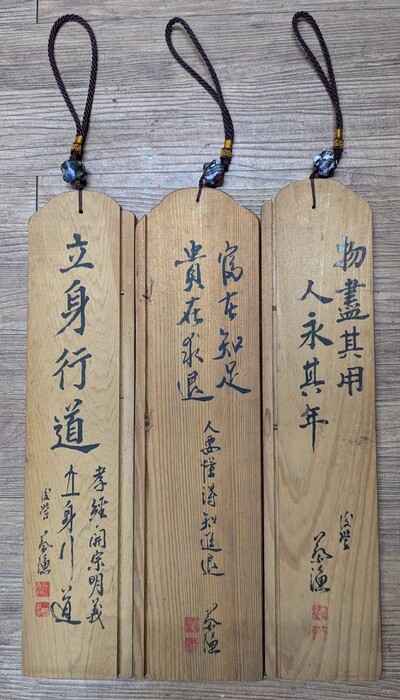 立身行道
孝經開宗明義
立身行道
後學
漁
富在知足
貴在求退
人要懂得知進退
漁
物盡其用
人永其年
後學
漁